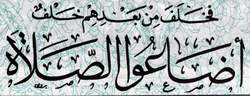 فَخَلَفَ مِنْ بَعْدِهِمْ خَلْفٌ
أَضَاعُوا الصَّلَاةَ